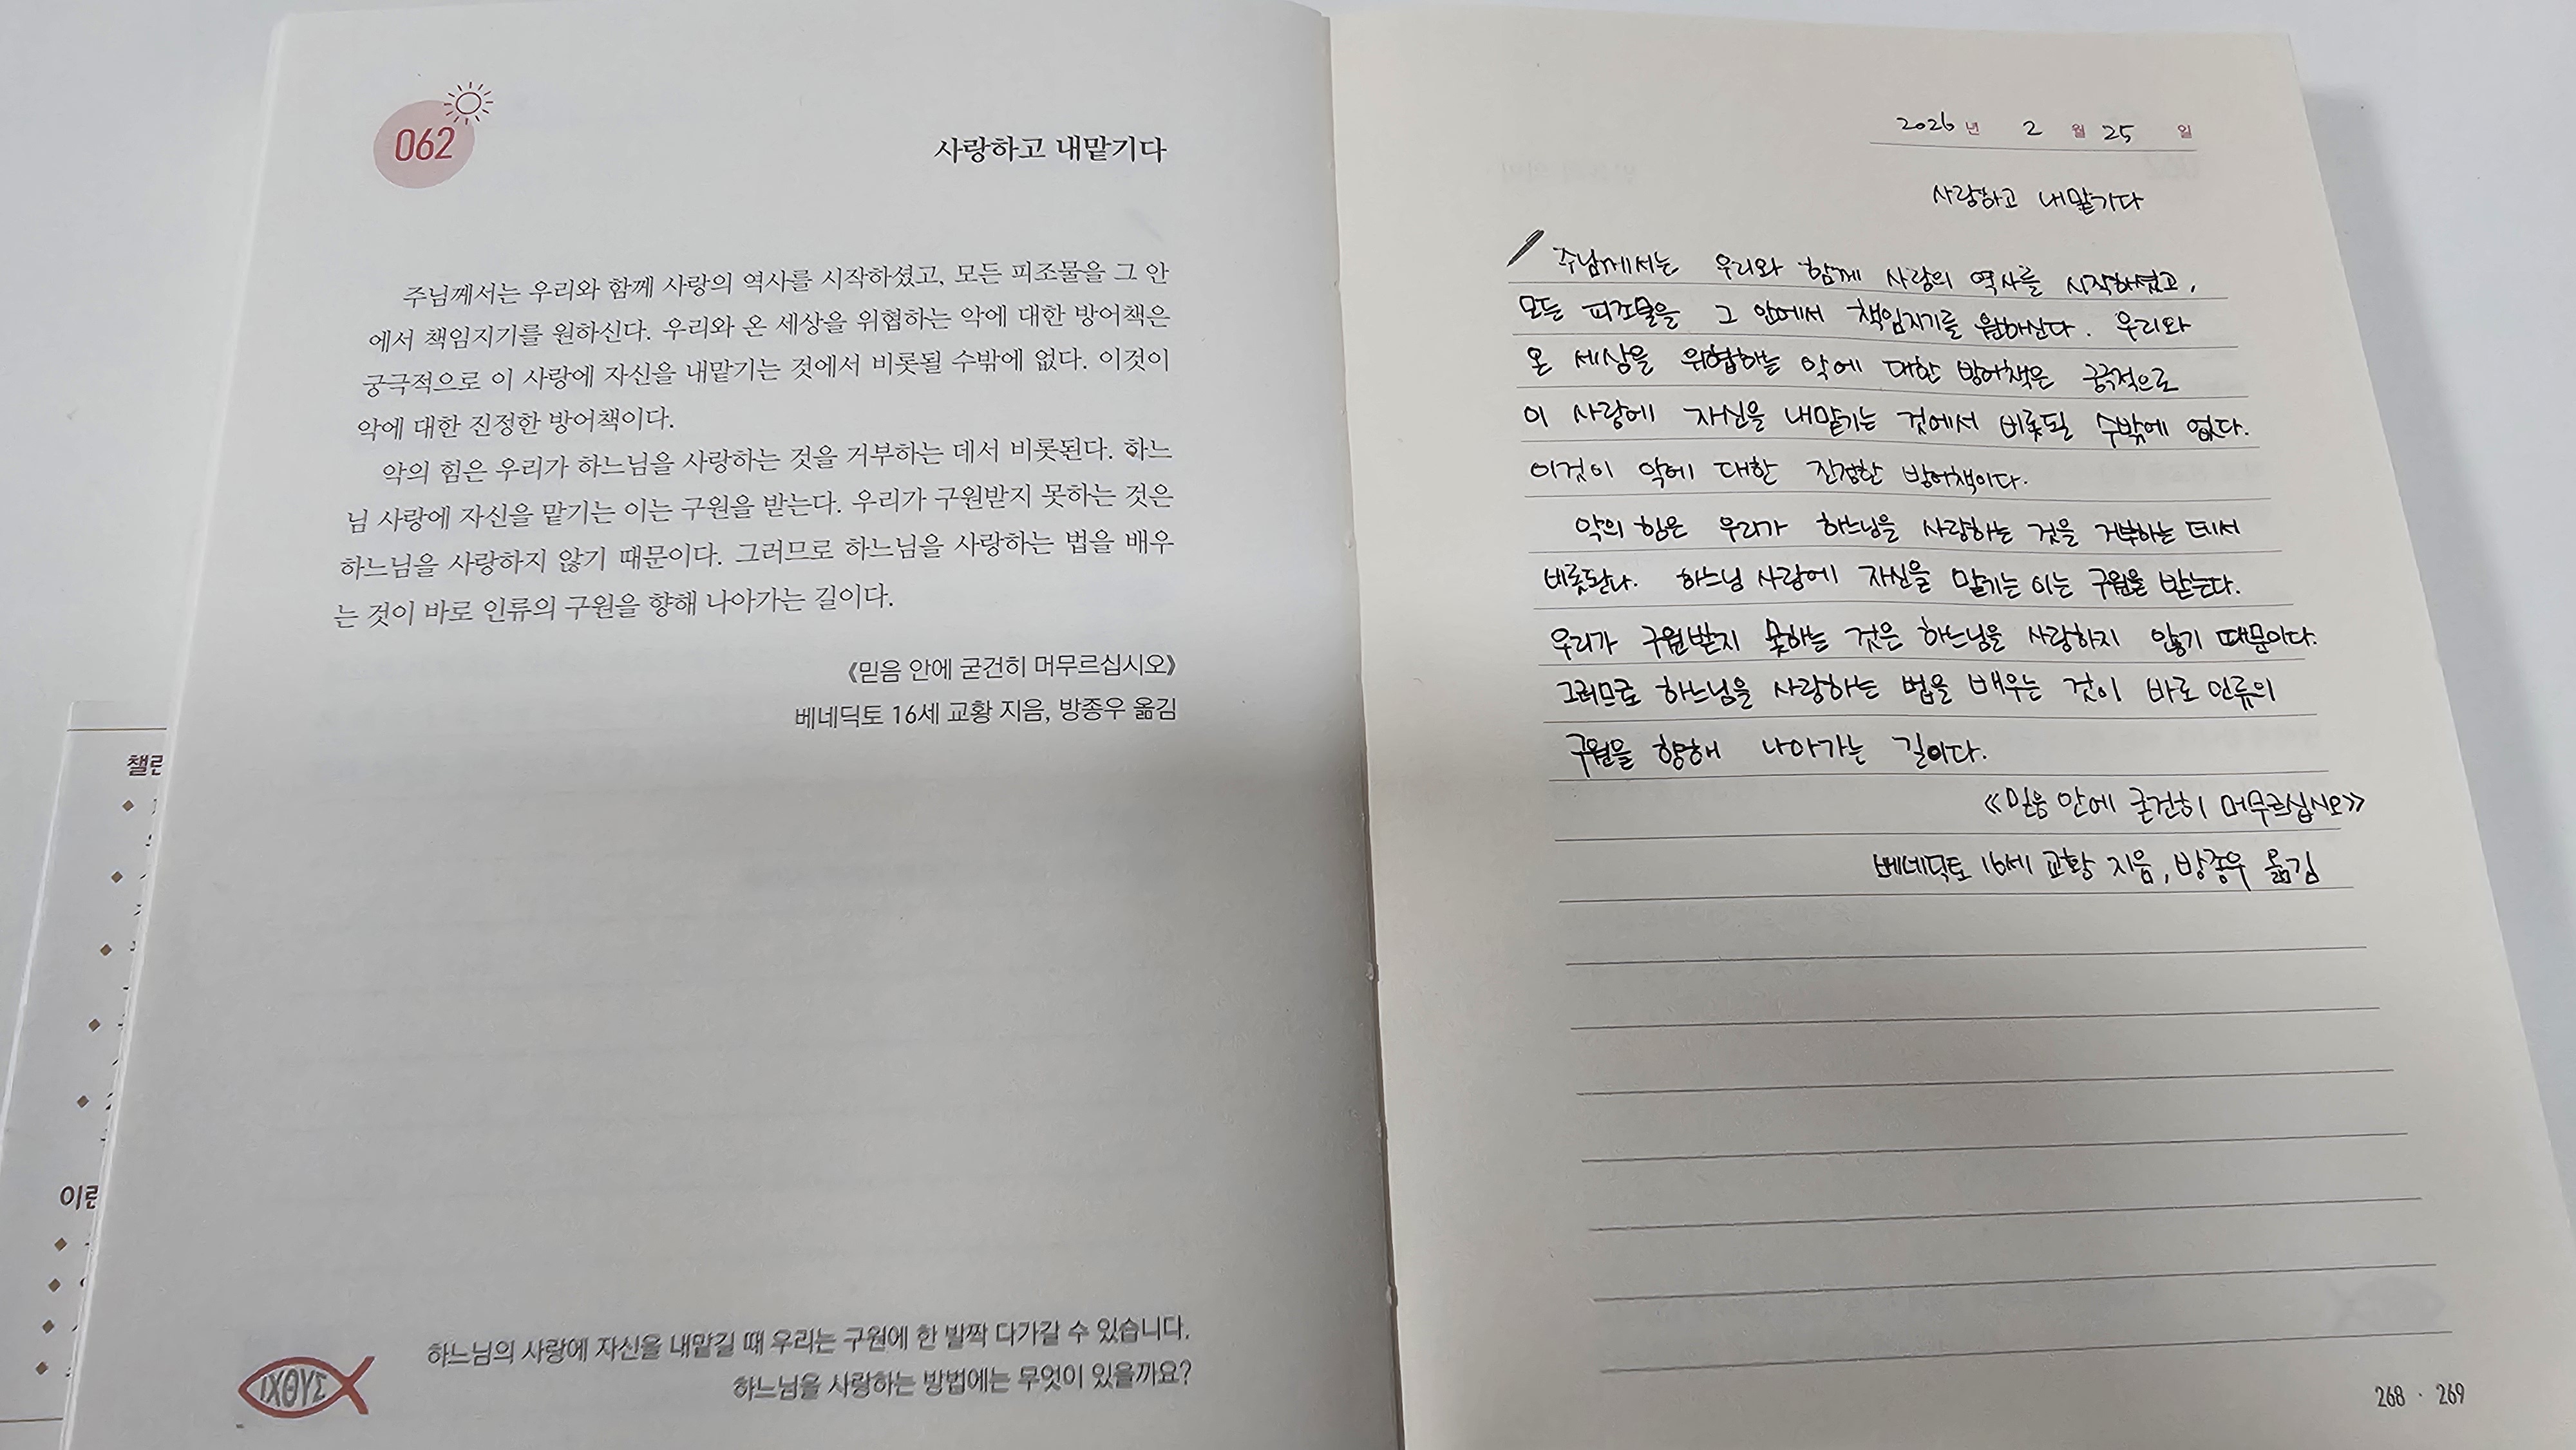 062
사랑하고 내맡기다
주님께서는 우리와 함께 사랑의 역사를 시작하셨고, 모든 피조물을 그 안
에서 책임지기를 원하신다. 우리와 온 세상을 위협하는 악에 대한 방어책은
궁극적으로 이 사랑에 자신을 내맡기는 것에서 비롯될 수밖에 없다. 이것이
악에 대한 진정한 방어책이다.
악의 힘은 우리가 하느님을 사랑하는 것을 거부하는 데서 비롯된다. 하느
님 사랑에 자신을 맡기는 이는 구원을 받는다. 우리가 구원받지 못하는 것은
하느님을 사랑하지 않기 때문이다. 그러므로 하느님을 사랑하는 법을 배우
는 것이 바로 인류의 구원을 향해 나아가는 길이다.
《믿음 안에 굳건히 머무르십시오》
베네딕토 16세 교황 지음, 방종우 옮김
하느님의 사랑에 자신을 내맡길 때 우리는 구원에 한 발짝 다가갈 수 있습니다.
하느님을 사랑하는 방법에는 무엇이 있을까요?
ΙΧΘΥΣ
챌린
이런
2026년 2월 25일
사랑하고 내맡기다
주님께서는 우리와 함께 사랑의 역사를 시작하셨고,
모든 피조물을 그 안에서 책임지기를 원하신다. 우리와
온 세상을 위협하는 악에 대한 방어책은 궁극적으로
이 사랑에 자신을 내맡기는 것에서 비롯될 수밖에 없다.
이것이 악에 대한 진정한 방어책이다.
악의 힘은 우리가 하느님을 사랑하는 것을 거부하는 데서
비롯된다. 하느님 사랑에 자신을 맡기는 이는 구원을 받는다.
우리가 구원받지 못하는 것은 하느님을 사랑하지 않기 때문이다.
그러므로 하느님을 사랑하는 법을 배우는 것이 바로 인류의
구원을 향해 나아가는 길이다.
《믿음 안에 굳건히 머무르십시오》
베네딕토 16세 교황 지음, 방종우 옮김
268 · 269